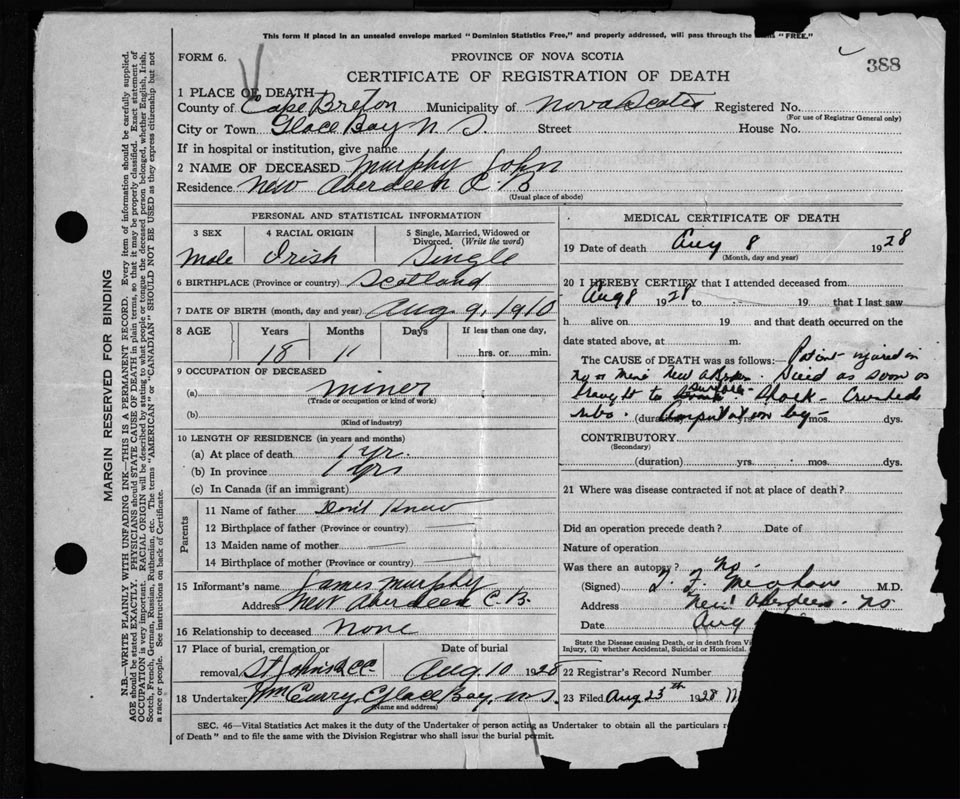 This form if placed in an unsealed envelope marked "Dominion Statistics Free," and properly addressed, will pass through the "FREE."
FORM 6.
PROVINCE OF NOVA SCOTIA
388
CERTIFICATE OF REGISTRATION OF DEATH
1 PLACE OF DEATH—
County of Cape Breton Municipality of Nova Scotia Registered No.
(For use of Registrar General only)
City or Town Glace Bay N. S. Street House No.
If in hospital or institution, give name
2 NAME OF DECEASED Murphy John
Residence New Aberdeen C. B.
(Usual place of abode)
PERSONAL AND STATISTICAL INFORMATION
3 SEX 4 RACIAL ORIGIN 5 Single, Married, Widowed or Divorced. (Write the word)
Male Irish Single
6 BIRTHPLACE (Province or country) Scotland
7 DATE OF BIRTH (month, day and year) Aug 9, 1910
8 AGE Years Months Days If less than one day,
18 11 hrs. or min.
9 OCCUPATION OF DECEASED
(a) miner
(Trade or occupation or kind of work)
(b)
(Kind of industry)
10 LENGTH OF RESIDENCE (in years and months)
(a) At place of death 1 yr.
(b) In province 1 yrs
(c) In Canada (if an immigrant)
Parents
11 Name of father Don't Know
12 Birthplace of father (Province or country)
13 Maiden name of mother
14 Birthplace of mother (Province or country)
15 Informant's name James Murphy
Address New Aberdeen C. B.
16 Relationship to deceased None
17 Place of burial, cremation or Date of burial
removal St Johns CC Aug. 10 1928
18 Undertaker Wm Glace Bay, N. S.
(Name and address)
MEDICAL CERTIFICATE OF DEATH
19 Date of death Aug 8 1928
(Month, day and year)
20 I HEREBY CERTIFY that I attended deceased from
Aug 8 1928 to 19 that I last saw
h alive on 19 and that death occurred on the
date stated above, at m.
The CAUSE of DEATH was as follows: Patient injured in
No mine New Aberdeen. Died as soon as
brought to surface. Shock - Crushed
ribs. (duration) Amputation leg yrs. mos. dys.
CONTRIBUTORY
(Secondary)
(duration) yrs. mos. dys.
21 Where was disease contracted if not at place of death?
Did an operation precede death? Date of
Nature of operation
Was there an autopsy? No.
(Signed) M.D.
Address New Aberdeen. NS
Date Aug
State the Disease causing Death, or in death from
Injury, (2) whether Accidental, Suicidal or Homicidal.
22 Registrar's Record Number
23 Filed Aug. 23th 1928
SEC. 46—Vital Statistics Act makes it the duty of the Undertaker or person acting as Undertaker to obtain all the particulars
of Death" and to file the same with the Division Registrar who shall issue the burial permit.
MARGIN RESERVED FOR BINDING
N.B.—WRITE PLAINLY WITH UNFADING INK—THIS IS A PERMANENT RECORD. Every item of information should be carefully supplied.
AGE should be stated EXACTLY. PHYSICIANS should STATE CAUSE OF DEATH in plain terms, so that it may be properly classified. Exact statement of
OCCUPATION is very important. RACIAL ORIGIN will be described by stating to what people or tongue the deceased person belonged, whether English, Irish,
Scotch, French, German, Russian, Ruthenian, etc. The terms "AMERICAN" or "CANADIAN" SHOULD NOT BE USED as they express citizenship but not
a race or people. See instructions on back of Certificate.